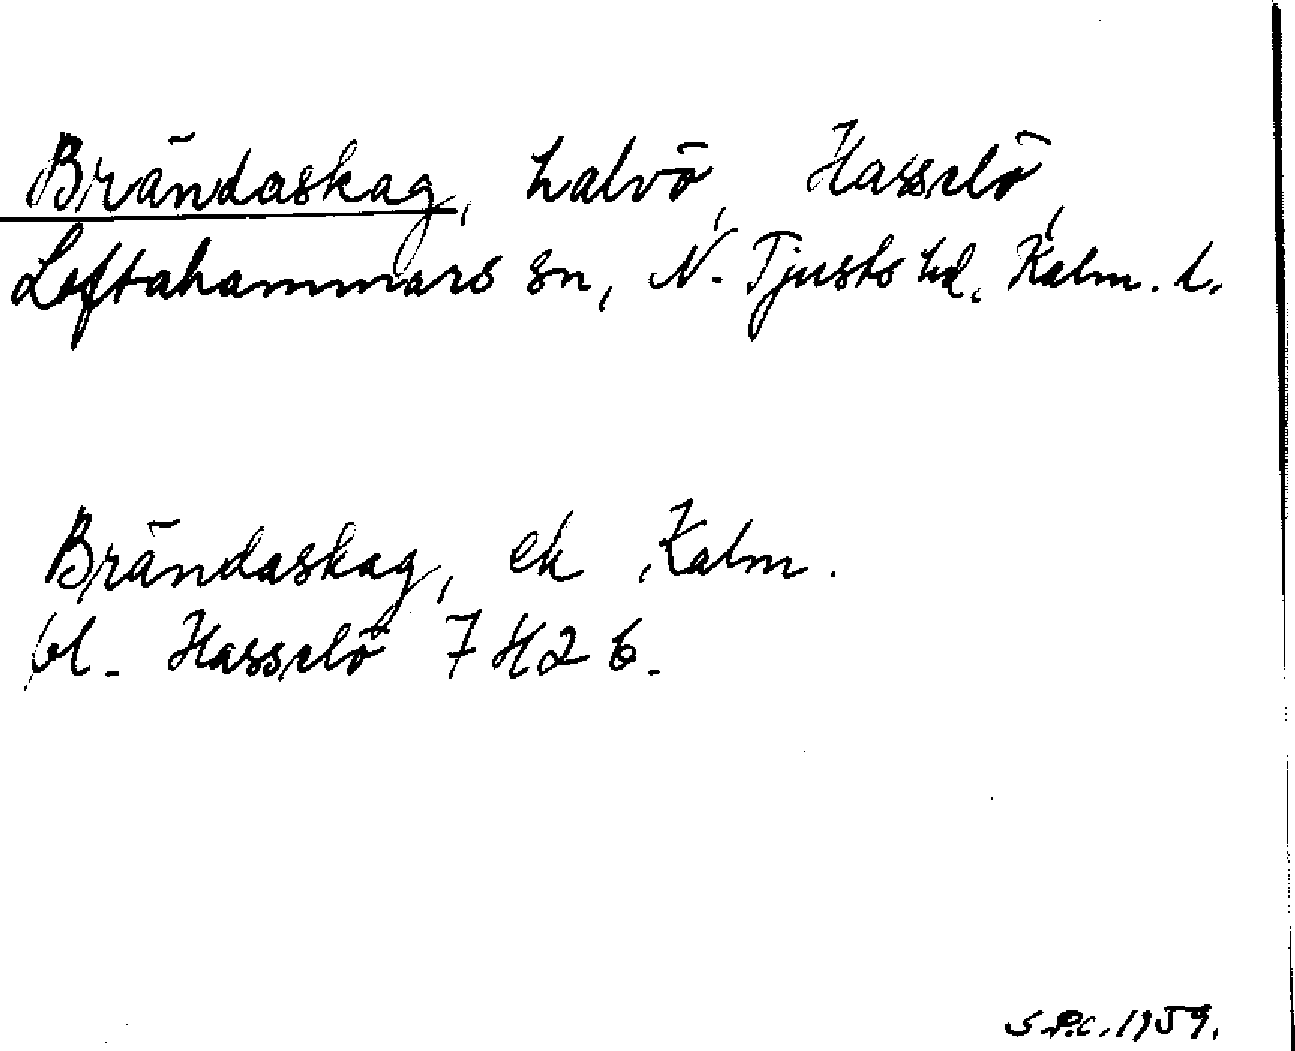 Brändaskag, halvö, Hasselö,
Loftahammars sn, N. Tjusts hd, Kalm. l.
Brändaskag, ek Kalm.
bl. Hasselö 7 H 2 b.
S.P.C. 1959.